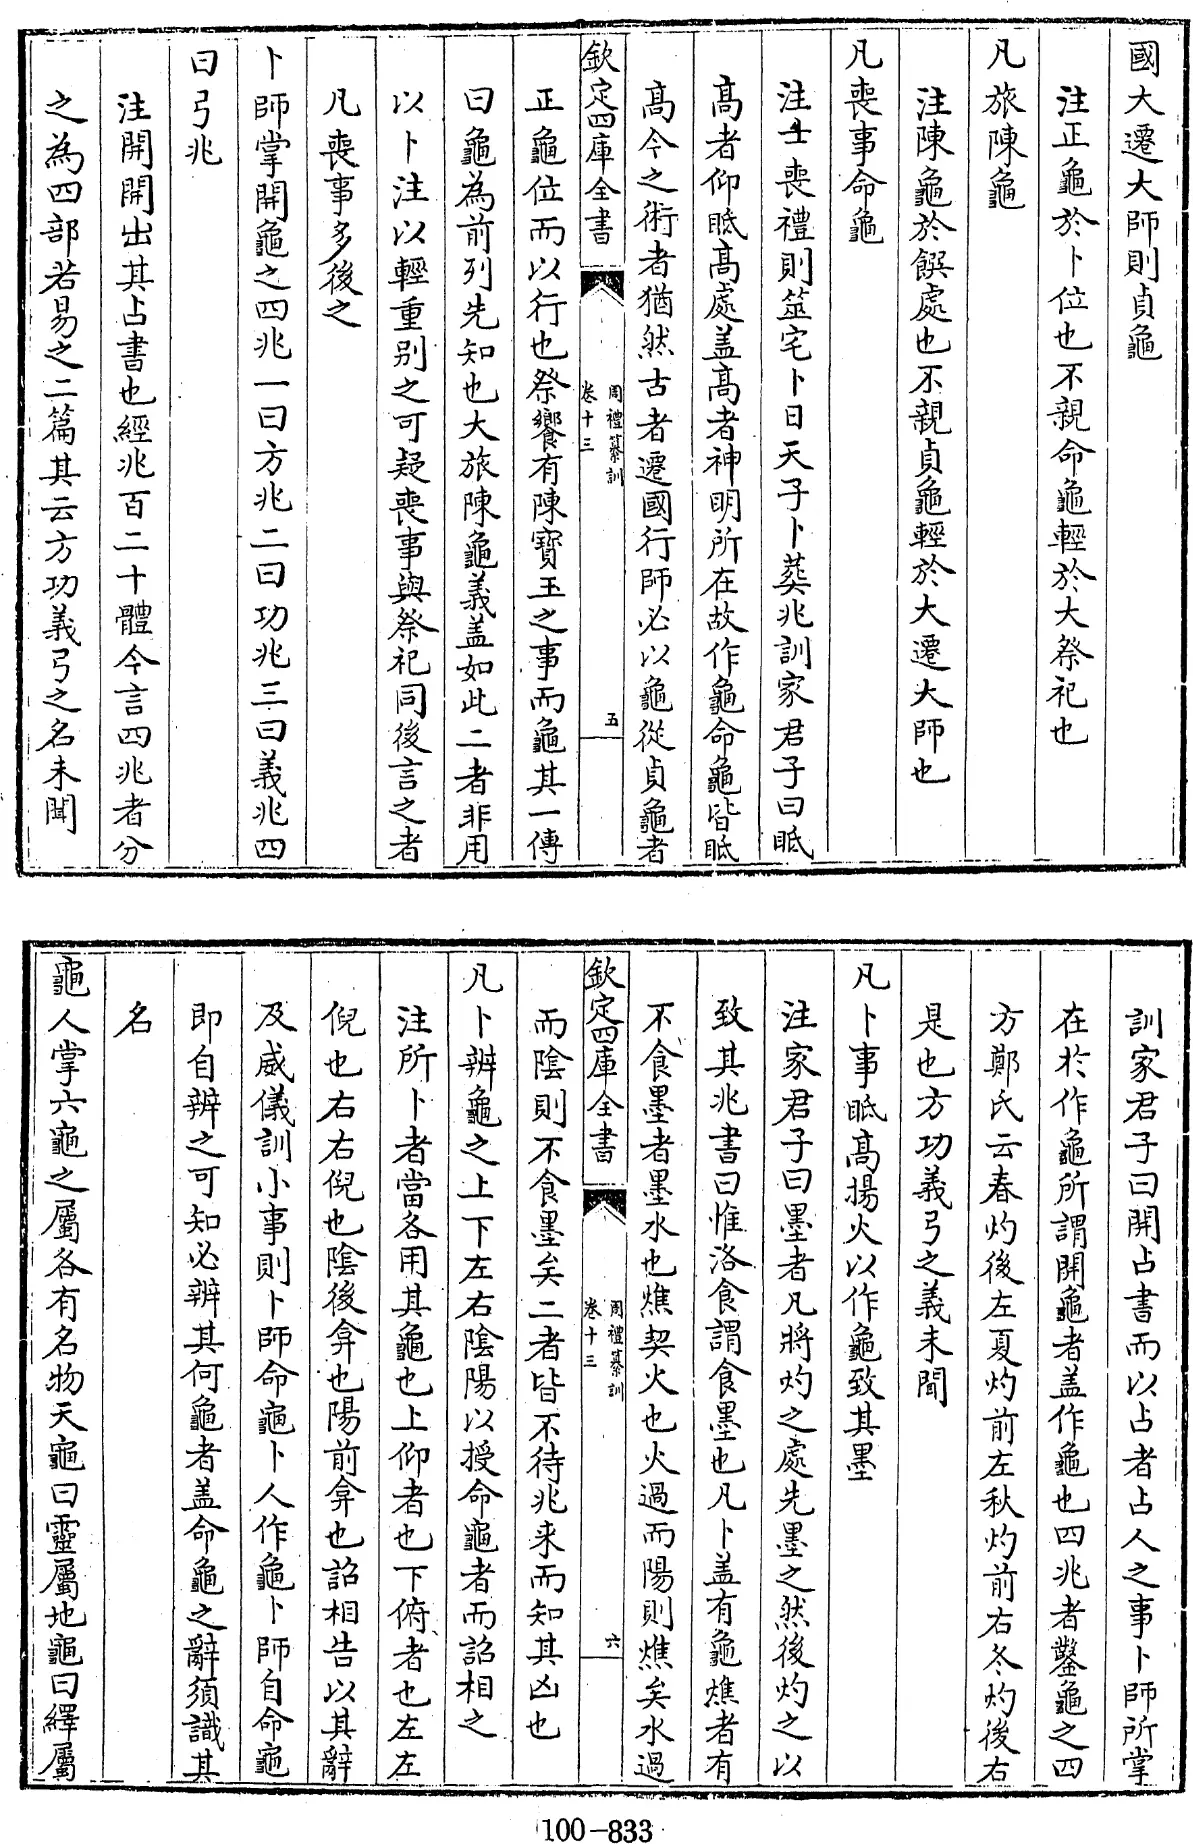 國大遷大師則貞龜
注正龜於卜位也不親命龜輕於大祭祀也
凡旅陳龜
注陳龜於饌處也不親貞龜輕於大遷大師也
凡喪事命龜
注士喪禮則筮宅卜日天子卜葬兆訓家君子曰眡
髙者仰眡髙處盖髙者神明所在故作龜命龜皆眡
髙今之術者猶然古者遷國行師必以龜從貞龜者
欽定四庫全書
周禮纂訓
卷十三
五
正龜位而以行也祭饗有陳寳玉之事而龜其一傳
曰龜為前列先知也大旅陳龜義盖如此二者非用
以卜注以輕重别之可疑喪事與祭祀同後言之者
凡喪事多後之
卜師掌開龜之四兆一曰方兆二曰功兆三曰義兆四
曰弓兆
注開開出其占書也經兆百二十體今言四兆者分
之為四部若易之二篇其云方功義弓之名未聞
訓家君子曰開占書而以占者占人之事卜師所掌
在於作龜所謂開龜者盖作龜也四兆者鑿龜之四
方鄭氏云春灼後左夏灼前左秋灼前右冬灼後右
是也方功義弓之義未聞
凡卜事眡髙揚火以作龜致其墨
注家君子曰墨者凡將灼之處先墨之然後灼之以
致其兆書曰惟洛食謂食墨也凡卜盖有龜燋者有
不食墨者墨水也燋契火也火過而陽則燋矣水過
欽定四庫全書
周禮纂訓
卷十三
六
而陰則不食墨矣二者皆不待兆来而知其凶也
凡卜辨龜之上下左右陰陽以授命龜者而詔相之
注所卜者當各用其龜也上仰者也下俯者也左左
倪也右右倪也陰後弇也陽前弇也詔相告以其辭
及威儀訓小事則卜師命龜卜人作龜卜師自命龜
即自辨之可知必辨其何龜者盖命龜之辭須識其
名
龜人掌六龜之屬各有名物天龜曰靈屬地龜曰繹屬
100-833